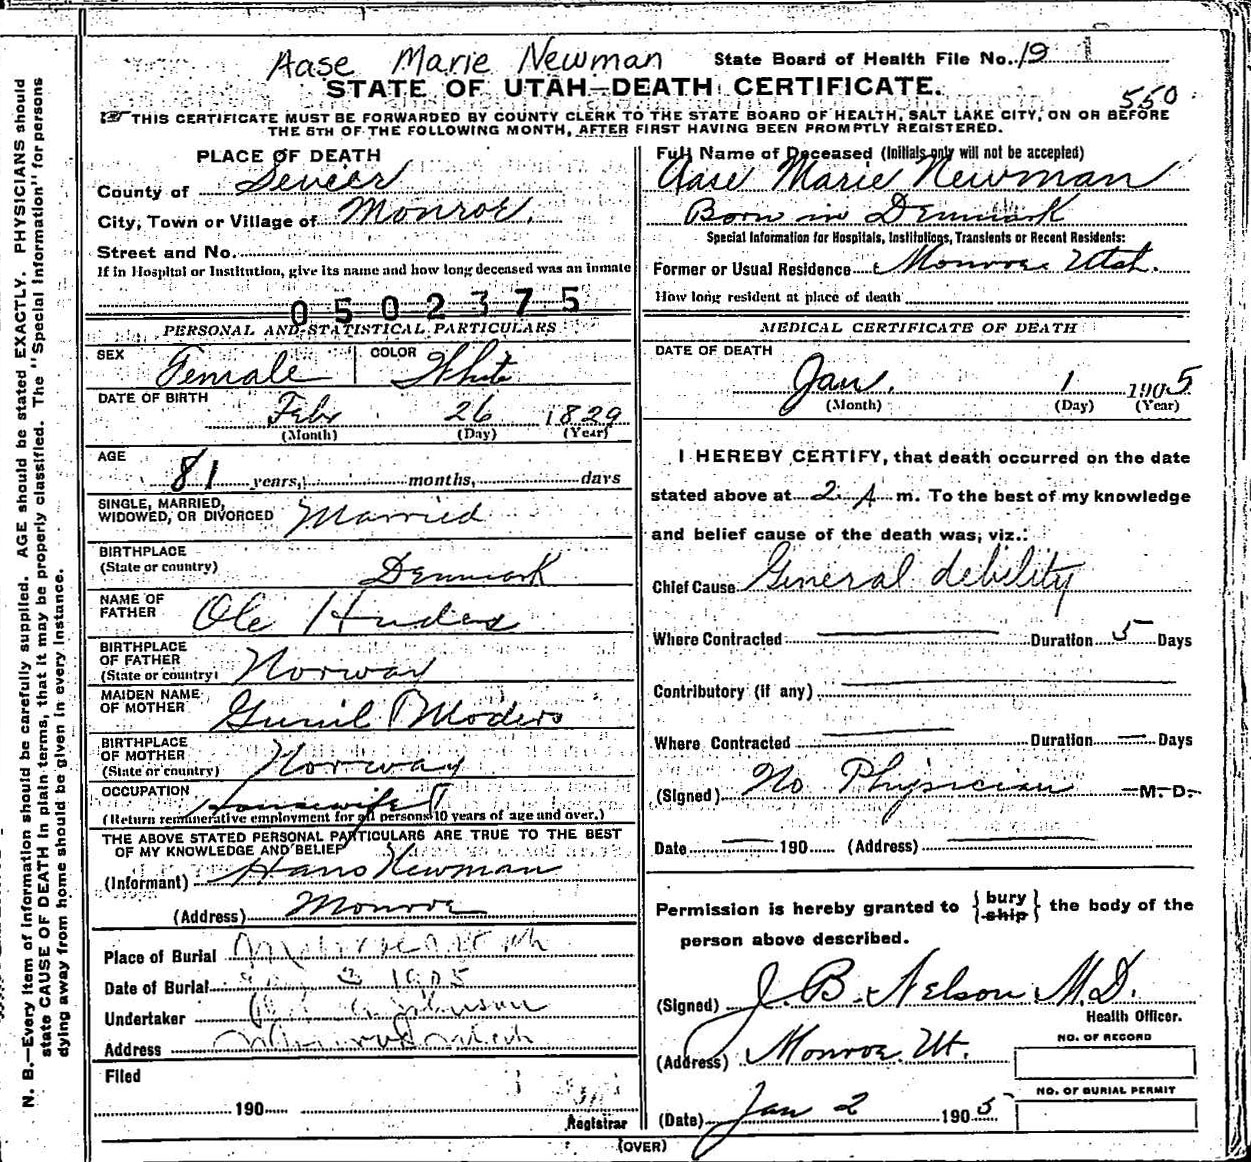 Aase Marie Newman State Board of Health File No. 19
STATE OF UTAH—DEATH CERTIFICATE.
550
THIS CERTIFICATE MUST BE FORWARDED BY COUNTY CLERK TO THE STATE BOARD OF HEALTH, SALT LAKE CITY, ON OR BEFORE
THE 5TH OF THE FOLLOWING MONTH, AFTER FIRST HAVING BEEN PROMPTLY REGISTERED.
PLACE OF DEATH
County of Sevier
City, Town or Village of Monroe.
Street and No.
If in Hospital or Institution, give its name and how long deceased was an inmate
0502375
PERSONAL AND STATISTICAL PARTICULARS
SEX Female COLOR White
DATE OF BIRTH
Febr 26 1829
(Month) (Day) (Year)
AGE
81 years, months, days
SINGLE, MARRIED,
WIDOWED, OR DIVORCED Married
BIRTHPLACE
(State or country) Denmark
NAME OF
FATHER Ole
BIRTHPLACE
OF FATHER
(State or country) Norway
MAIDEN NAME
OF MOTHER Gunil Moders
BIRTHPLACE
OF MOTHER
(State or country) Norway
OCCUPATION Housewife
(Return remunerative employment for all persons 10 years of age and over.)
THE ABOVE STATED PERSONAL PARTICULARS ARE TRUE TO THE BEST
OF MY KNOWLEDGE AND BELIEF
(Informant) Hans Newman
(Address) Monroe
Place of Burial Monroe Utah
Date of Burial 3 1905
Undertaker
Address Monroe Utah
Filed
190
Registrar
Full Name of Deceased (Initials only will not be accepted)
Aase Marie Newman
Born in Denmark
Special Information for Hospitals, Institutions, Transients or Recent Residents:
Former or Usual Residence Monroe Utah.
How long resident at place of death
MEDICAL CERTIFICATE OF DEATH
DATE OF DEATH
Jan. 1 1905
(Month) (Day) (Year)
I HEREBY CERTIFY, that death occurred on the date
stated above at 2 A m. To the best of my knowledge
and belief cause of the death was, viz.:
Chief Cause General debility
Where Contracted Duration 5 Days
Contributory (if any)
Where Contracted Duration — Days
(Signed) No Physician M. D.
Date 190 (Address)
Permission is hereby granted to { bury ship } the body of the
person above described.
(Signed) J. B. Nelson M.D.
Health Officer.
(Address) Monroe Ut.
NO. OF RECORD
NO. OF BURIAL PERMIT
(Date) Jan 2 1905
(OVER)
N. B.—Every item of information should be carefully supplied. AGE should be stated EXACTLY. PHYSICIANS should
state CAUSE OF DEATH in plain terms, that it may be properly classified. The "Special Information" for persons
dying away from home should be given in every instance.